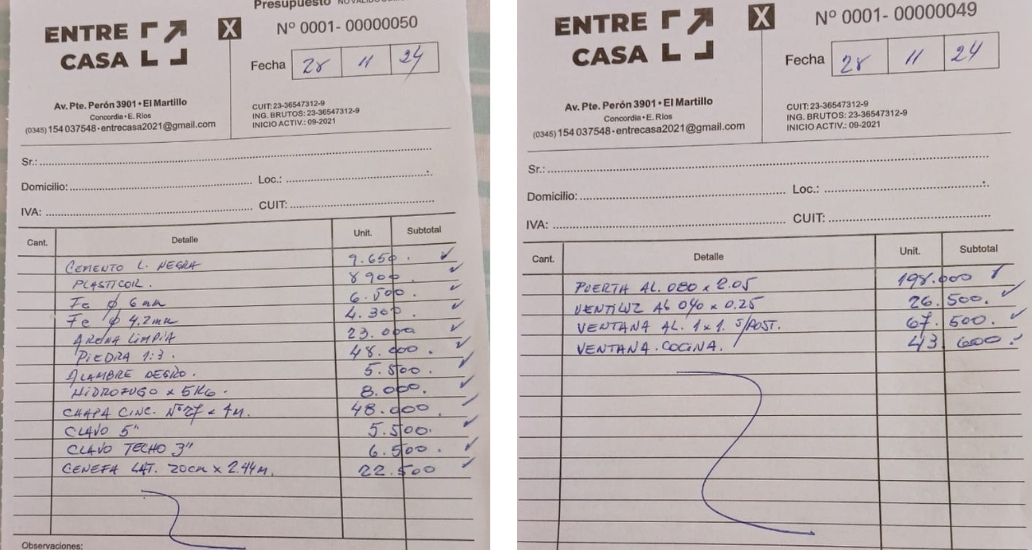 Presupuesto
ENTRE
CASA
X
Nº 0001- 00000050
Fecha 28 11 24
Av. Pte. Perón 3901 • El Martillo
Concordia • E. Rios
(0345) 154 037548 - entrecasa2021@gmail.com
CUIT: 23-36547312-9
ING. BRUTOS: 23-36547312-9
INICIO ACTIV.: 09-2021
Sr.:
Domicilio: Loc.:
IVA: CUIT:
Cant. Detalle Unit. Subtotal
CEMENTO L. NEGRA 9.650.
PLASTICOR. 8900
Fe ϕ 6mm 6.500.
Fe ϕ 4.2mm 4.300.
ARENA LIMPIA 23.000
PIEDRA 1:3. 48.000.
ALAMBRE NEGRO. 5.500.
HIDROFUGO x 5KG. 8.000.
CHAPA CINC. Nº27 x 4M. 48.000.
CLAVO 5" 5.500.
CLAVO TECHO 3" 6.500.
CENEFA LAT. 20cm x 2.44M. 22.500
Observaciones:
ENTRE
CASA
X
Nº 0001- 00000049
Fecha 28 11 24
Av. Pte. Perón 3901 • El Martillo
Concordia • E. Rios
(0345) 154 037548 - entrecasa2021@gmail.com
CUIT: 23-36547312-9
ING. BRUTOS: 23-36547312-9
INICIO ACTIV.: 09-2021
Sr.:
Domicilio: Loc.:
IVA: CUIT:
Cant. Detalle Unit. Subtotal
PUERTA AL. 080 x 2.05 198.000
VENTILUZ AL 040 x 0.25 26.500.
VENTANA AL. 1x1. S/POST. 67.500.
VENTANA COCINA. 43.600.